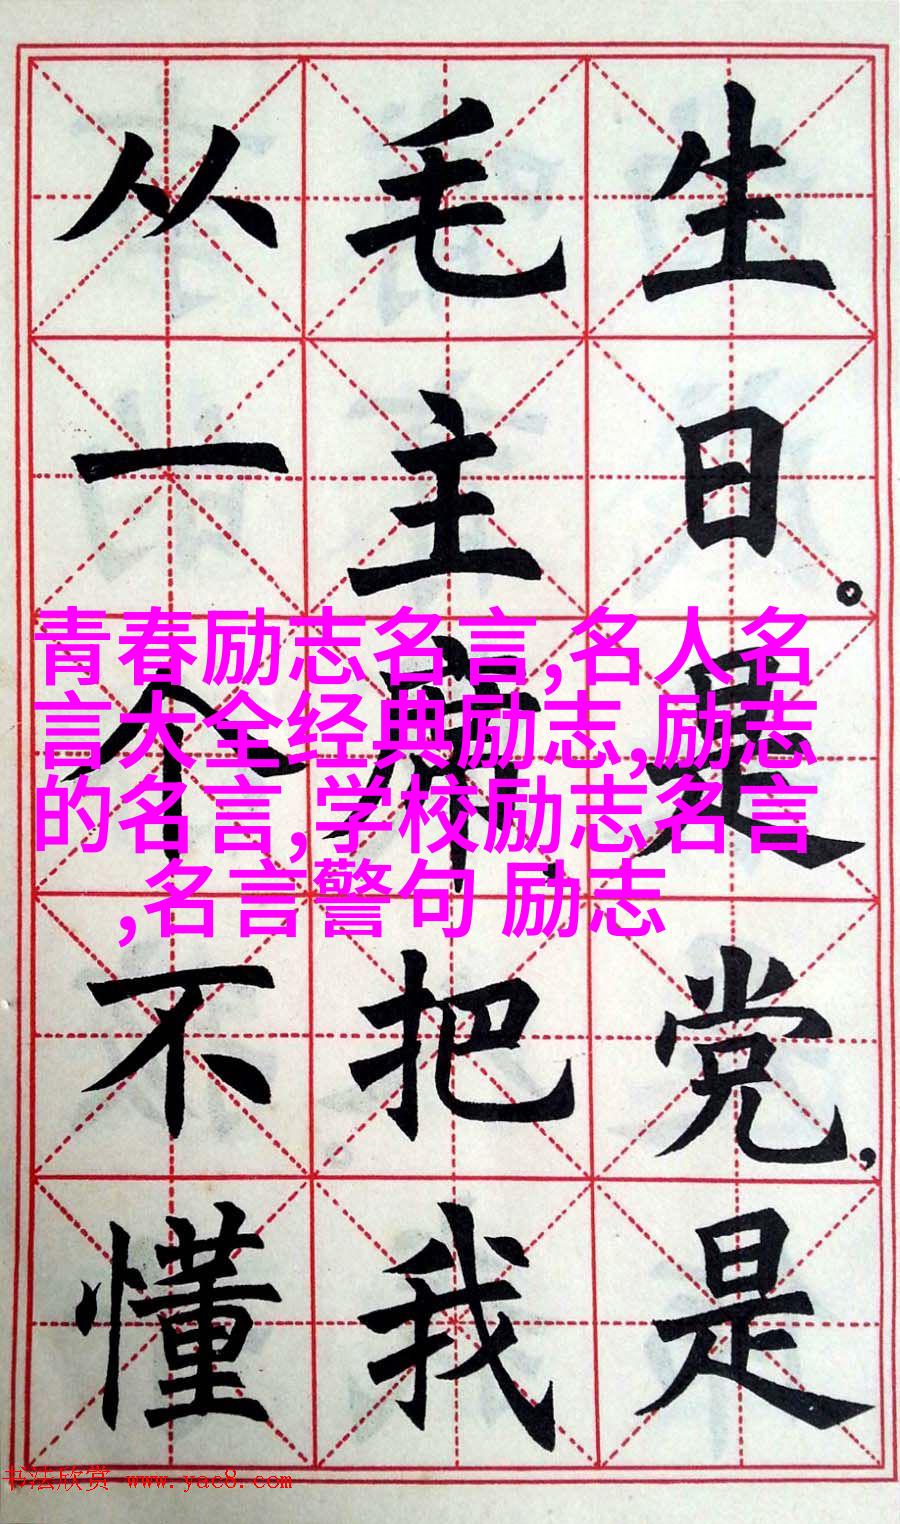 生日。是党，是
毛主席，把我
从一个不懂
青春励志名言,名人名
言大全经典励志,励志
的名言,学校励志名言
,名言警句 励志
书法欣赏 www.yac8.com